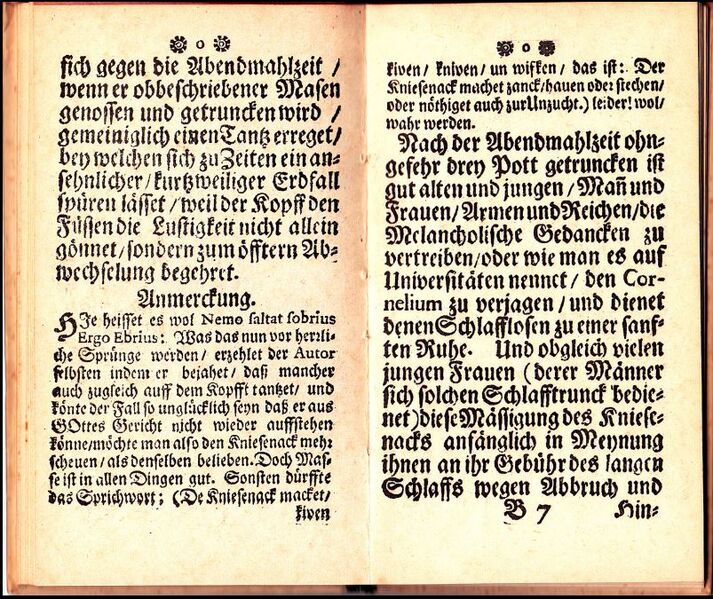 0
sich gegen die Abendmahlzeit /
wenn er obbeschriebener Masen
genossen und getruncken wird /
gemeiniglich einen Tantz erreget /
bey welchen sich zu Zeiten ein an-
sehnlicher / kurtzweiliger Erdfall
spüren lässet / weil der Kopff den
Füssen die Lustigkeit nicht allein
gönnet / sondern zum öfftern Ab-
wechselung begehret.
Anmerckung.
HIe heisset es wol Nemo saltat sobrius
Ergo Ebrius: Was das nun vor herrli-
che Sprünge werden / erzehlet der Autor
selbsten indem er bejahet / daß mancher
auch zugleich auff dem Kopfft tantzet / und
könte der Fall so unglücklich seyn daß er aus
GOttes Gericht nicht wieder auffstehen
könne / möchte man also den Kniesenack mehr
scheuen / als denselben belieben. Doch Mas-
se ist in allen Dingen gut. Sonsten dürffte
das Sprichwort; (De Kniesenack macket /
kiven
0
kiven / kniven / un wisken / das ist: Der
Kniesenack machet zanck / hauen oder stechen /
oder nöthiget auch zur Unzucht.) leider! wol
wahr werden.
Nach der Abendmahlzeit ohn-
gefehr drey Pott getruncken ist
gut alten und jungen / Mañ und
Frauen / Armen und Reichen / die
Melancholische Gedancken zu
vertreiben / oder wie man es auf
Universitäten nennet / den Cor-
nelium zu verjagen / und dienet
denen Schlafflosen zu einer sanf-
ten Ruhe. Und obgleich vielen
jungen Frauen (derer Männer
sich solchen Schlafftrunck bedie-
net) diese Mässigung des Kniese-
nacks anfänglich in Meynung
ihnen an ihr Gebühr des langen
Schlaffs wegen Abbruch und
B 7 Hin-